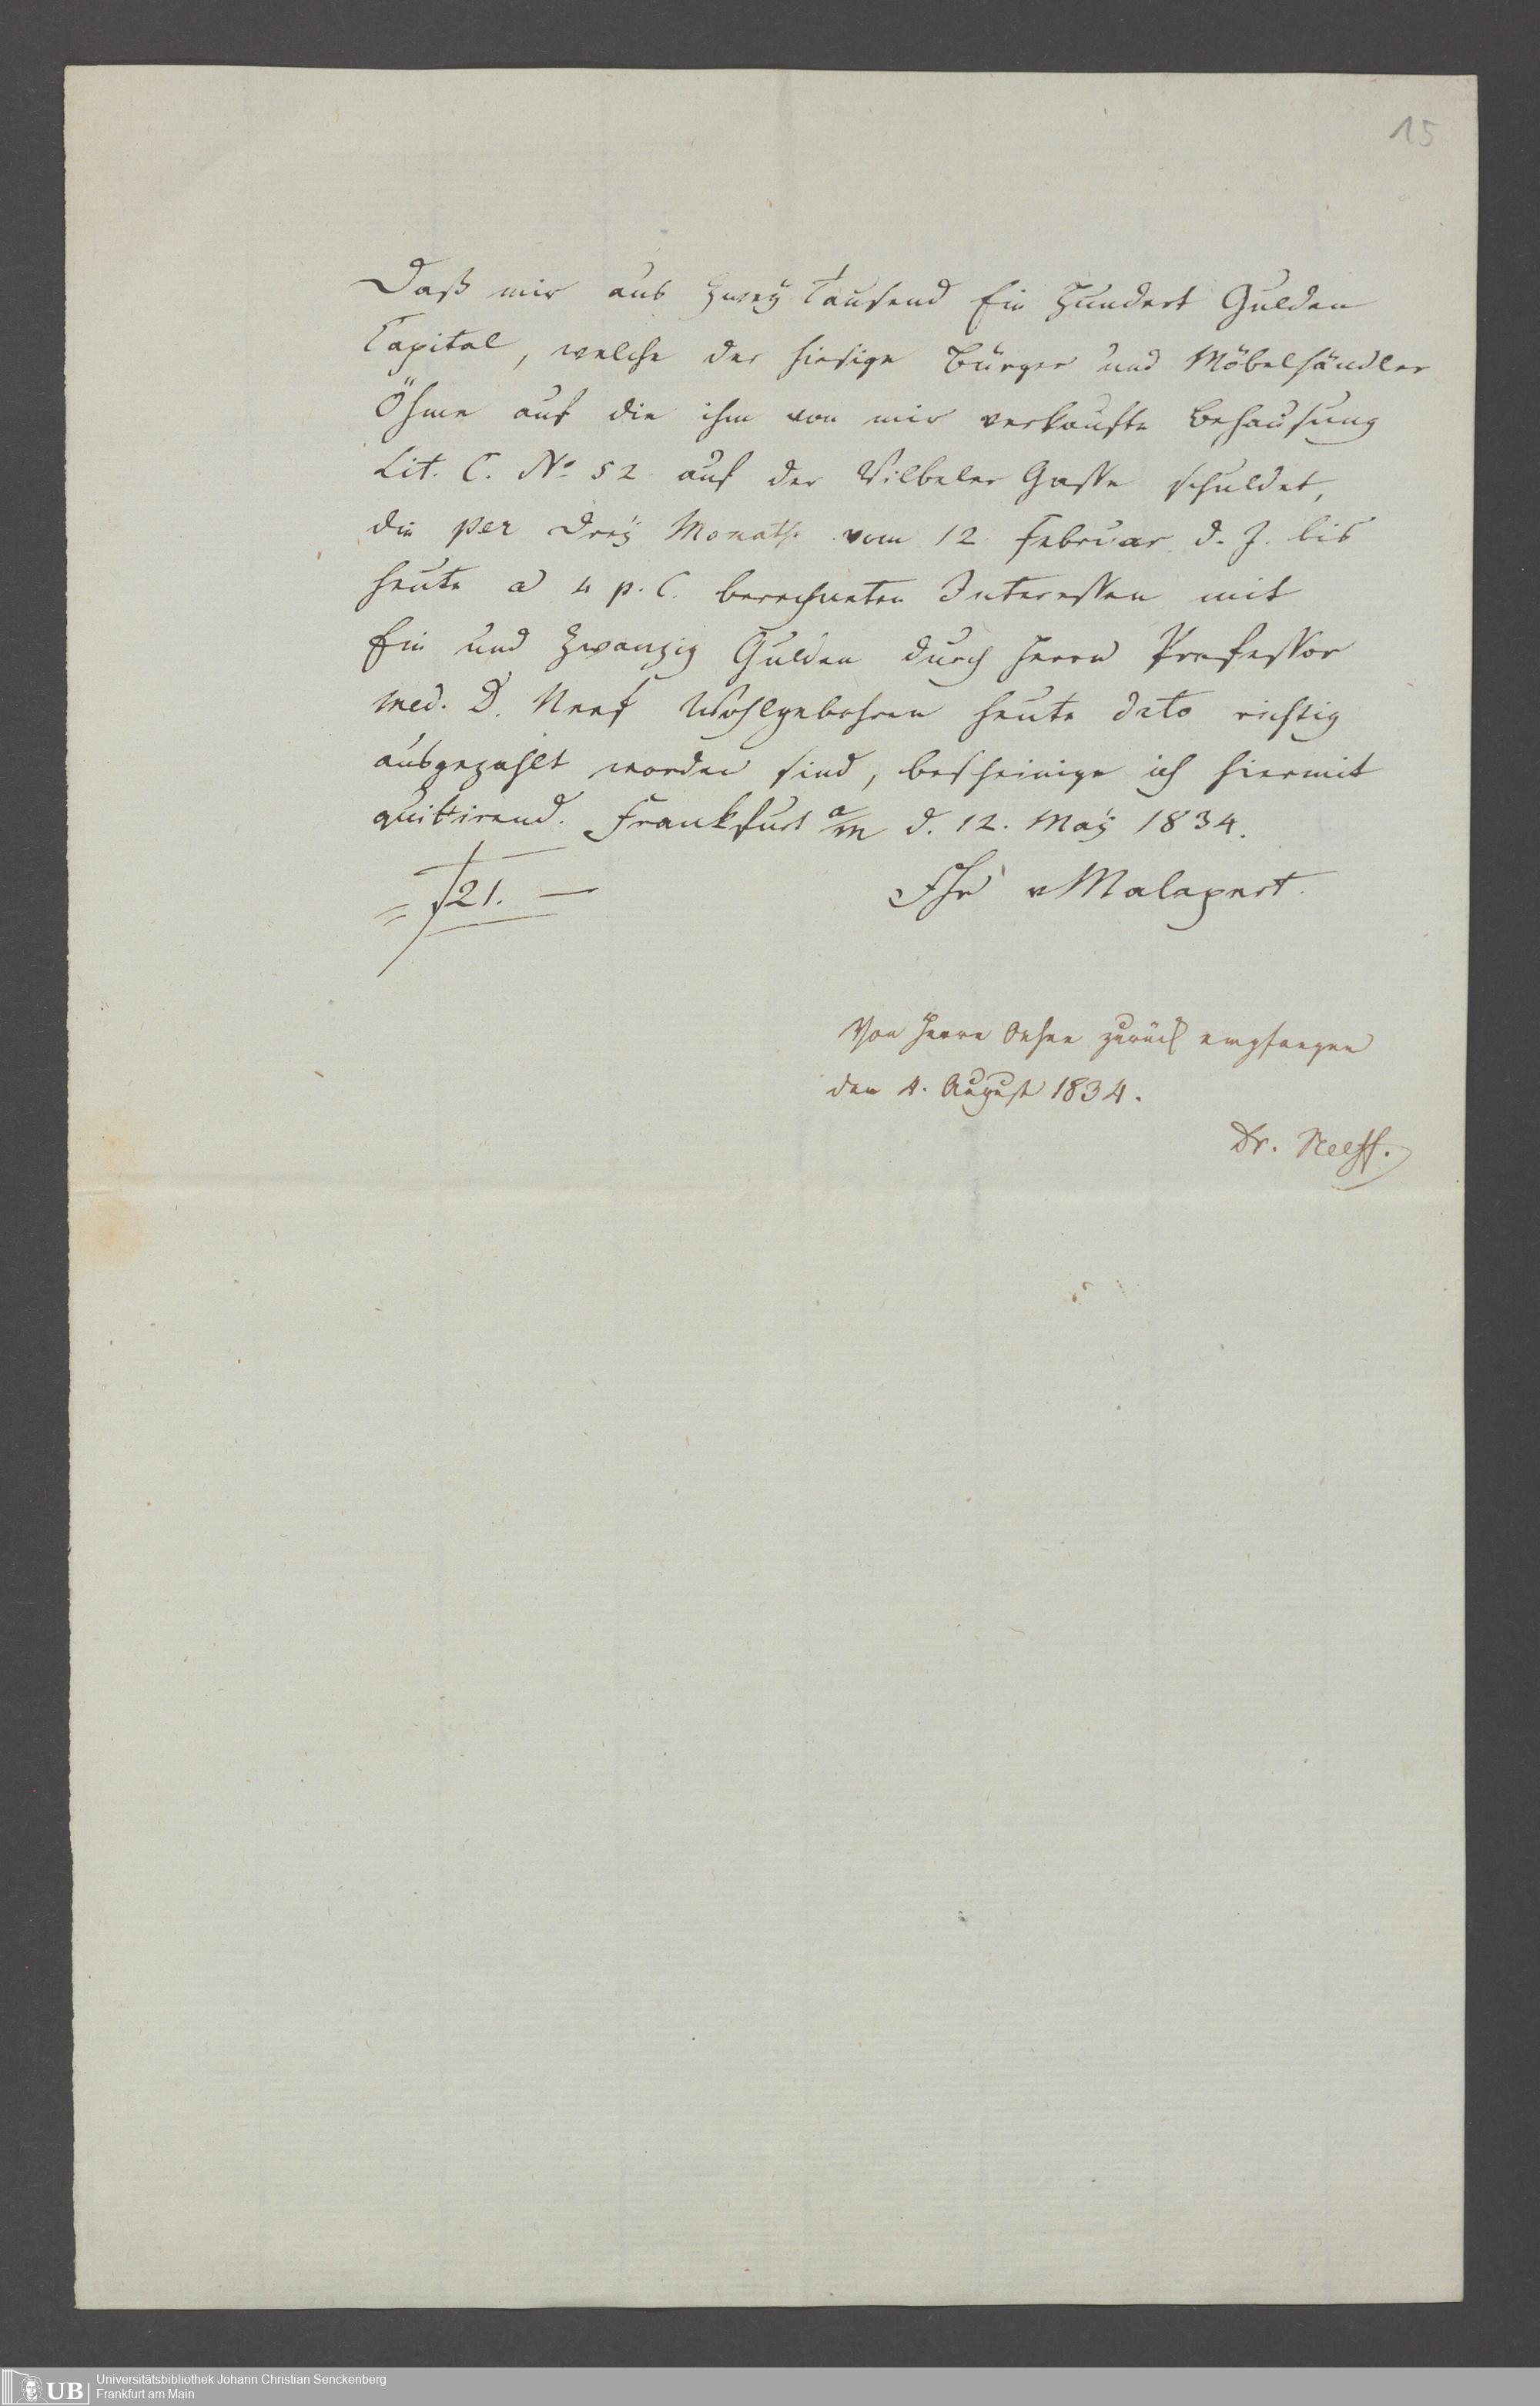 15
Daß mir aus Zwey Tausend Ein Hundert Gulden
Capital, welche der hiesige Bürger und Möbelhändler
Öhme auf die ihm von mir verkaufte Behausung
Lit. C. No 52 auf der Vilbeler Gasse schuldet,
die per Drey Monath vom 12 Februar d. J. bis
heute a 4 p. C. berechneten Interessen mit
Ein und Zwanzig Gulden durch Herrn Professor
med. D. Neef Wohlgebohren heute dato richtig
ausgezahlt worden sind, bescheinige ich hiermit
quittirend. Frankfurt a/m d. 12. May 1834.
= f 21. —
Fhr v Malapert.
Von Herrn zurück empfangen
den 4. August 1834.
Dr. Neeff.
UB
Universitätsbibliothek Johann Christian Senckenberg
Frankfurt am Main